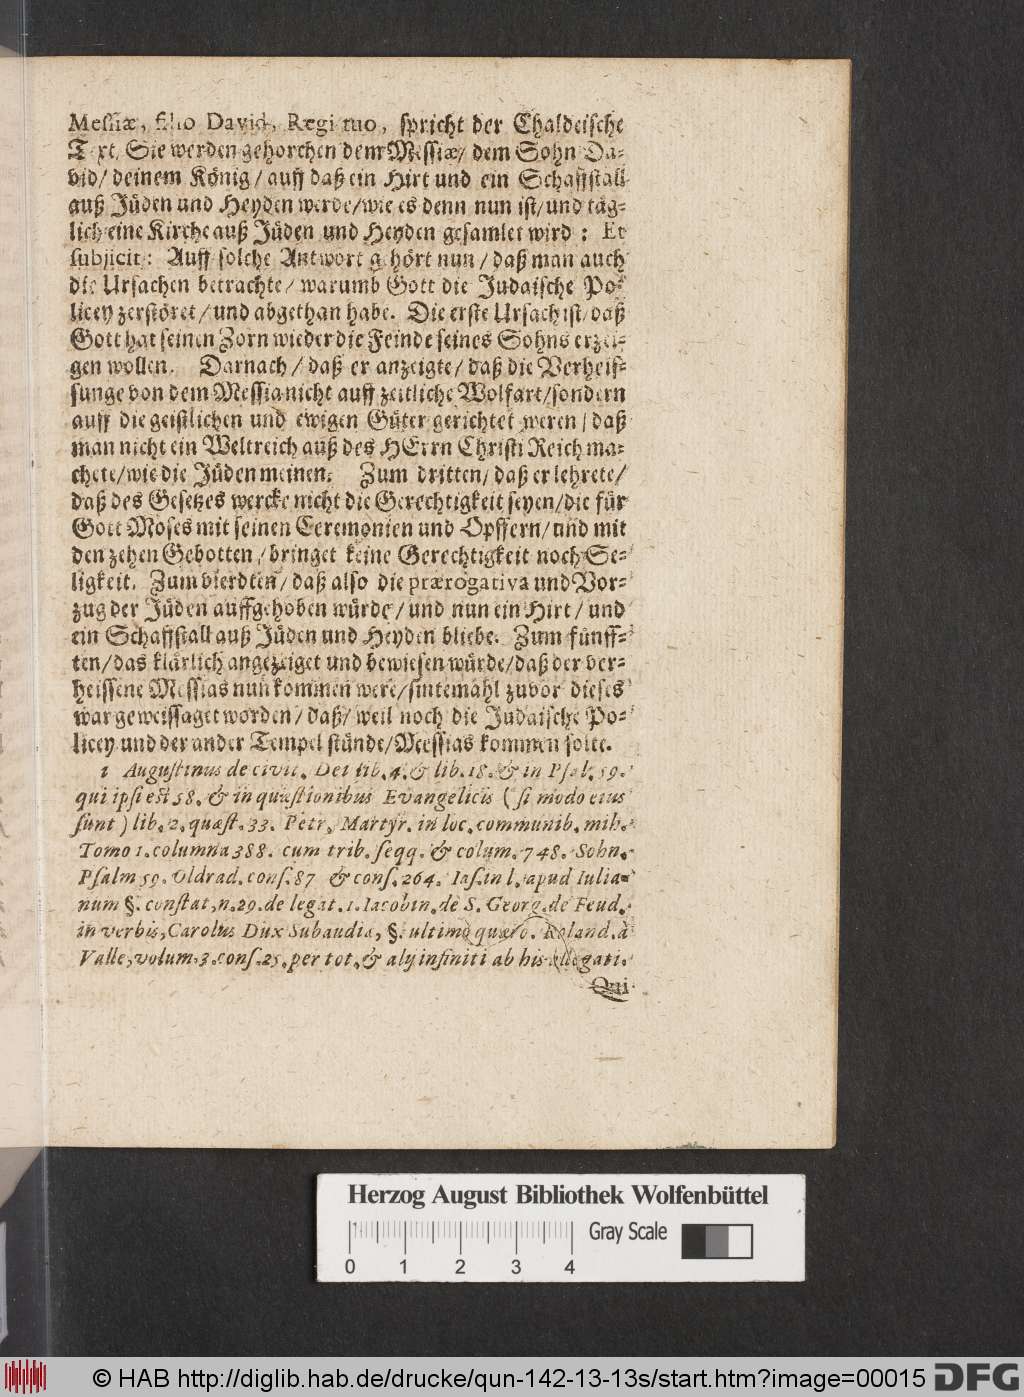 Messiæ, filio David, Regi tuo, spricht der Chaldeische
Text, Sie werden gehorchen dem Messiæ/ dem Sohn Da-
vid/ deinem König/ auff daß ein Hirt und ein Schaffstall
auß Jüden und Heyden werde/wie es denn nun ist/und täg-
lich eine Kirche auß Jüden und Heyden gesamlet wird : Et
subjicit: Auff solche Antwort gehört nun/ daß man auch
die Ursachen betrachte/ warumb Gott die Judaische Po-
licey zerstöret/und abgethan habe. Die erste Ursach ist/daß
Gott hat seinen Zorn wieder die Feinde seines Sohns erzei-
gen wollen. Darnach/ daß er anzeigte/ daß die Verheis-
sunge von dem Messia nicht auff zeitliche Wolfart/sondern
auff die geistlichen und ewigen Güter gerichtet weren/ daß
man nicht ein Weltreich auß des HErrn Christi Reich ma-
chete/wie die Jüden meinen. Zum dritten/ daß er lehrete/
daß des Gesetzes wercke nicht die Gerechtigkeit seyen/die für
Gott Moses mit seinen Ceremonien und Opffern/und mit
den zehen Gebotten/ bringet keine Gerechtigkeit noch Se-
ligkeit. Zum vierdten/ daß also die prærogativa und Vor-
zug der Jüden auffgehoben würde/ und nun ein Hirt/ und
ein Schaffstall auß Jüden und Heyden bliebe. Zum fünff-
ten/das klärlich angezeiget und bewiesen würde/daß der ver-
heissene Messias nun kommen were/sintemahl zuvor dieses
war geweissaget worden/ daß/ weil noch die Judaische Po-
licey und der ander Tempel stünde/Messias kommen solte.
1 Augustinus de civit. Dei lib. 4. & lib. 18. & in Psal. 59.
qui ipsi est 58. & in quæstionibus Evangelicis (si modo eius
sunt) lib. 2. quæst. 33. Petr. Martyr. in loc. communib. mih.
Tomo 1. columna 388. cum trib. seqq. & colum. 748. Sohn.
Psalm 59. Oldrad. cons. 87 & cons. 264. Ias. in l. apud Iulia-
num §. constat, n. 29. de legat. 1. Iacobin. de S. Georg. de Feud.
in verbis, Carolus Dux Subaudia, §. ultimo quæro. Roland. à
Valle, volum. 3. cons. 25. per tot. & alij infiniti ab his allegati.
Qui
Herzog August Bibliothek Wolfenbüttel
Gray Scale
0 1 2 3 4
© HAB http://diglib.hab.de/drucke/qun-142-13-13s/start.htm?image=00015 DFG